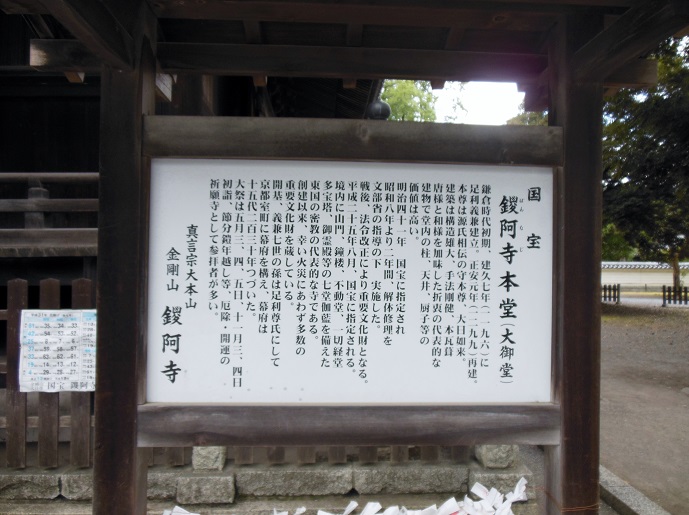 国宝
鑁阿寺本堂(大御堂)
ばんなじ
鎌倉時代初期、建久七年(一一九六)に
足利義兼建立、正安元年(一二九九)再建、
本尊は源氏相伝の守本尊、大日如来。
建築は構造雄大、手法剛健、本瓦葺
唐様と和様を加味した折衷の代表的な
建物で堂内の柱、天井、厨子等の
価値は高い。
明治四十一年、国宝に指定され
昭和八年より二年間、解体修理を
文部省の指導の下、実施した。
戦後、法令改正により重要文化財となる。
平成二十五年八月、国宝に指定される。
境内に山門、鐘楼、不動堂、一切経堂
多宝塔、御霊殿等の七堂伽藍を備えた
東国の密教の代表的な寺である。
創建以来、幸い火災にあわず多数の
重要文化財を蔵している。
開基、義兼七世の孫は足利尊氏にして
京都室町に幕府を構え、幕府は
十五代二百三十年つづいた。
大祭は五月三、四、五日、十一月三、四日
初詣、節分鎧年越し等、厄除・開運の
祈願寺として参拝者が多い。
真言宗大本山
金剛山 鑁阿寺
国宝 鑁阿寺